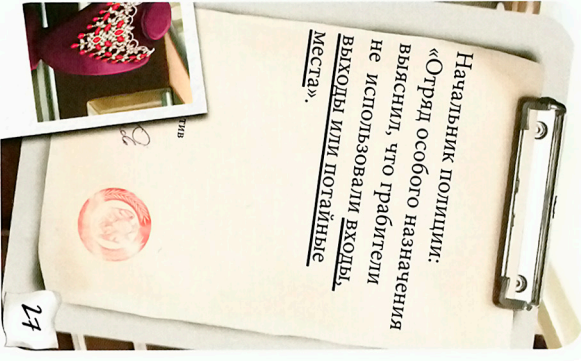 Начальник полиции:
«Отряд особого назначения
выяснил, что грабители
не использовали входы,
выходы или потайные
места».
27